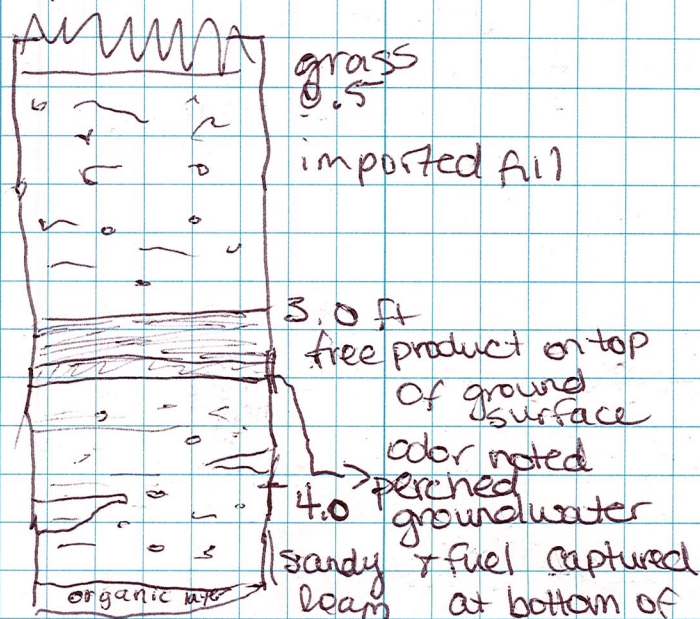 grass
0.5
imported fill
3.0 ft
free product on top
of ground
surface
odor noted
perched
4.0 groundwater
sandy + fuel captured
loam at bottom of
organic layer